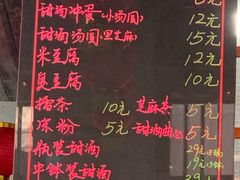 甜酒冲蛋(小汤圆) 12元
甜酒汤圆(黑芝麻) 15元
米豆腐 12元
臭豆腐 10元
擂茶 10元 芝麻茶 5元
凉粉 5元 甜酒曲 5元
瓶装甜酒 29元
甜酒